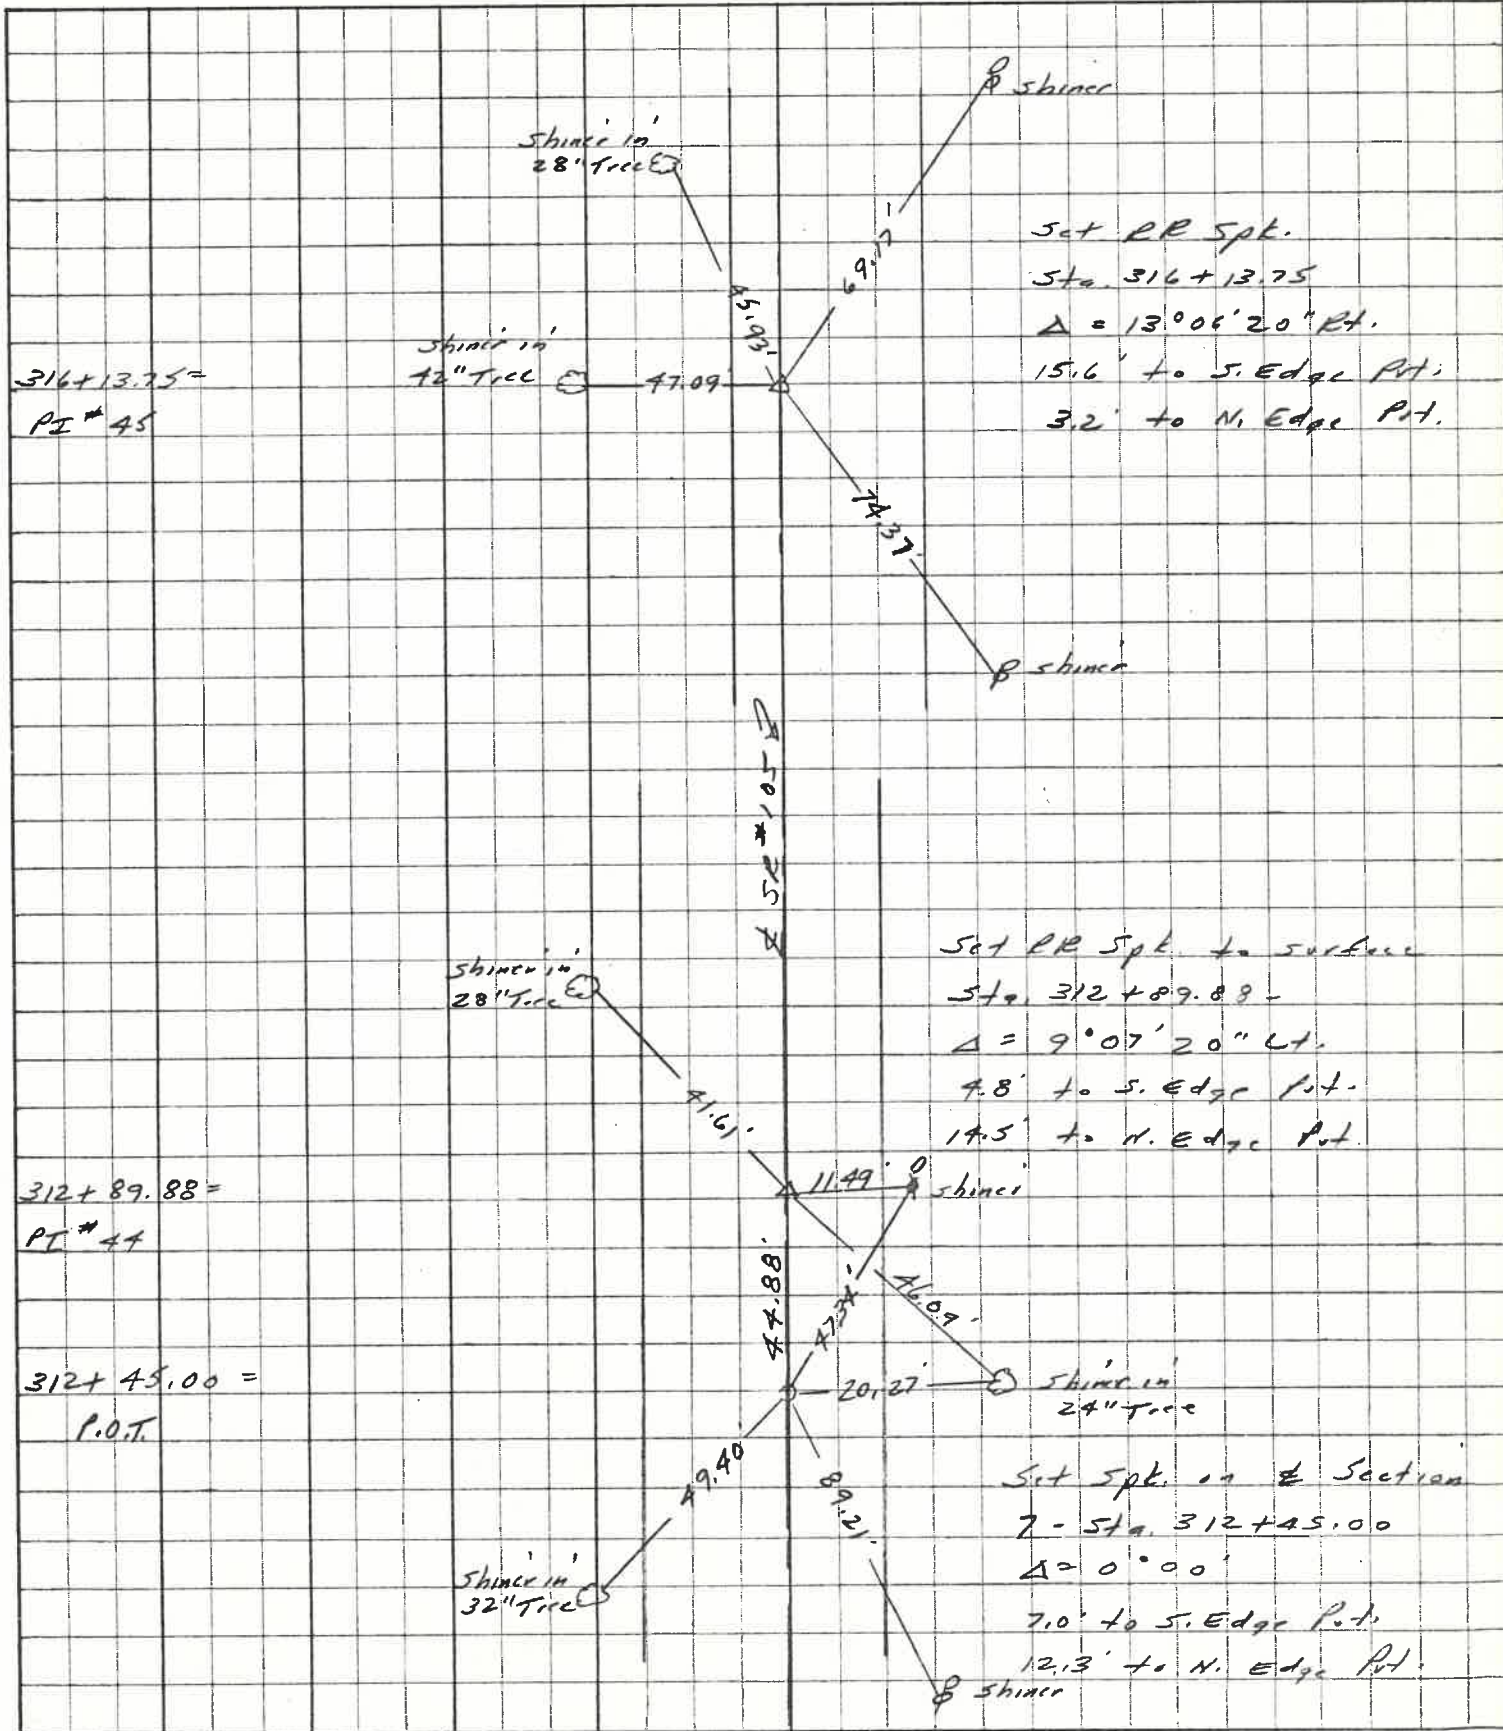 shiner
Shiner in
28" Tree
69.17'
Set RR Spk.
Sta. 316 + 13.75
Δ = 13°06'20" Rt.
15.6' to S. Edge Pvt.
3.2' to N. Edge Pvt.
45.93'
Shiner in
42" Tree
47.09'
316+13.75 =
PI # 45
74.37'
shiner
℄ SR #105
Set RR Spk. to surface
Sta. 312 + 89.88 -
Δ = 9°07'20" Lt.
4.8' to S. Edge Pvt.
14.5' to N. Edge Pvt.
Shiner in
28" Tree
41.61'
312 + 89.88 =
PI # 44
11.49'
shiner
44.88'
47.34'
46.09'
312 + 45.00 =
P.O.T.
20.27'
Shiner in
24" Tree
49.40'
89.21'
Set Spk. on ℄ Section
7 - Sta. 312 + 45.00
Δ = 0°00'
7.0' to S. Edge Pvt.
12.3' to N. Edge Pvt.
Shiner in
32" Tree
shiner